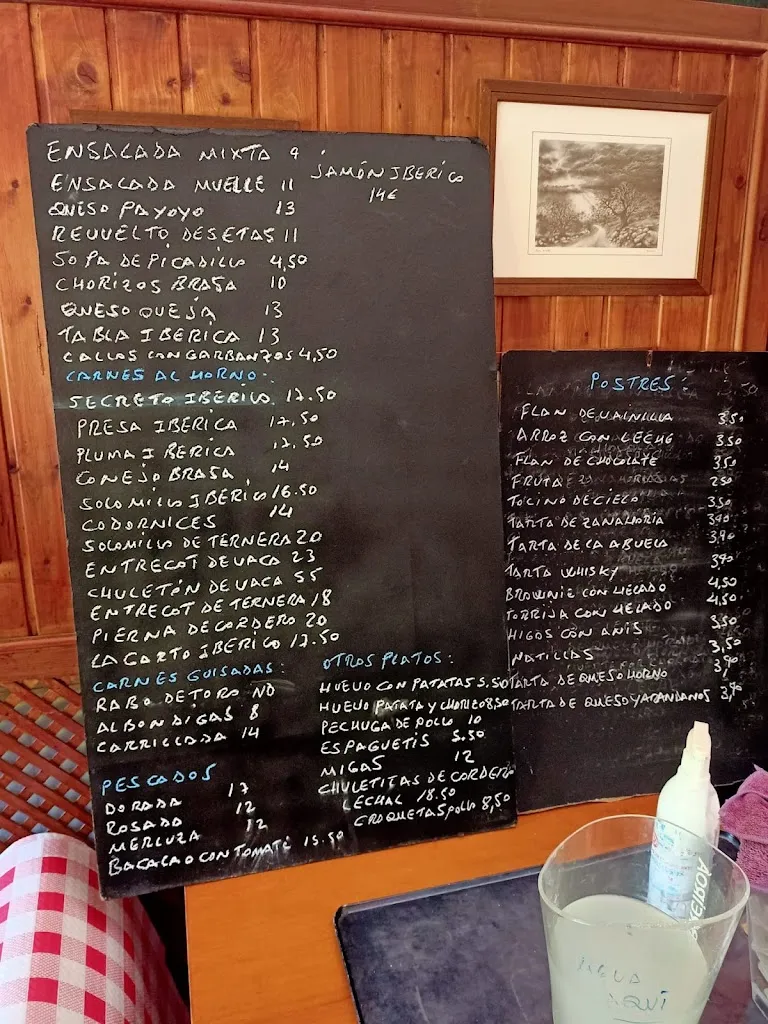 ENSALADA MIXTA 9
JAMÓN IBERICO
14€
ENSALADA MUELLE 11
QUESO PAYOYO 13
REVUELTO DE SETAS 11
SOPA DE PICADILLO 4,50
CHORIZOS BRASA 10
QUESO OVEJA 13
TABLA IBERICA 13
CALLOS CON GARBANZOS 4,50
CARNES AL HORNO:
SECRETO IBERICO 17.50
PRESA IBERICA 17,50
PLUMA IBERICA 17.50
CONEJO BRASA 14
SOLOMILLO IBERICO 16.50
CODORNICES 14
SOLOMILLO DE TERNERA 20
ENTRECOT DE VACA 23
CHULETÓN DE VACA 55
ENTRECOT DE TERNERA 18
PIERNA DE CORDERO 20
LAGARTO IBERICO 17.50
CARNES GUISADAS:
RABO DE TORO NO
ALBONDIGAS 8
CARRILLADA 14
PESCADOS
DORADA 17
ROSADA 12
MERLUZA 12
BACALAO CON TOMATE 15.50
OTROS PLATOS:
HUEVO CON PATATAS 5.50
HUEVO PATATA Y CHORIZO 8,50
PECHUGA DE POLLO 10
ESPAGUETIS 5.50
MIGAS 12
CHULETITAS DE CORDERO
LECHAL 18.50
CROQUETAS POLLO 8,50
POSTRES:
FLAN DE VAINILLA 3,50
ARROZ CON LECHE 3,50
FLAN DE CHOCOLATE 3,50
FRUTA 2,50
TOCINO DE CIELO 3,50
TARTA DE ZANAHORIA 3,90
TARTA DE LA ABUELA 3,90
TARTA WHISKY 3,90
BROWNIE CON HELADO 4,50
TORRIJA CON HELADO 4,50
HIGOS CON ANIS 3,50
NATILLAS 3,50
TARTA DE QUESO HORNO 3,90
TARTA DE QUESO Y ARANDANOS 3,90
AGUA
AQUÍ